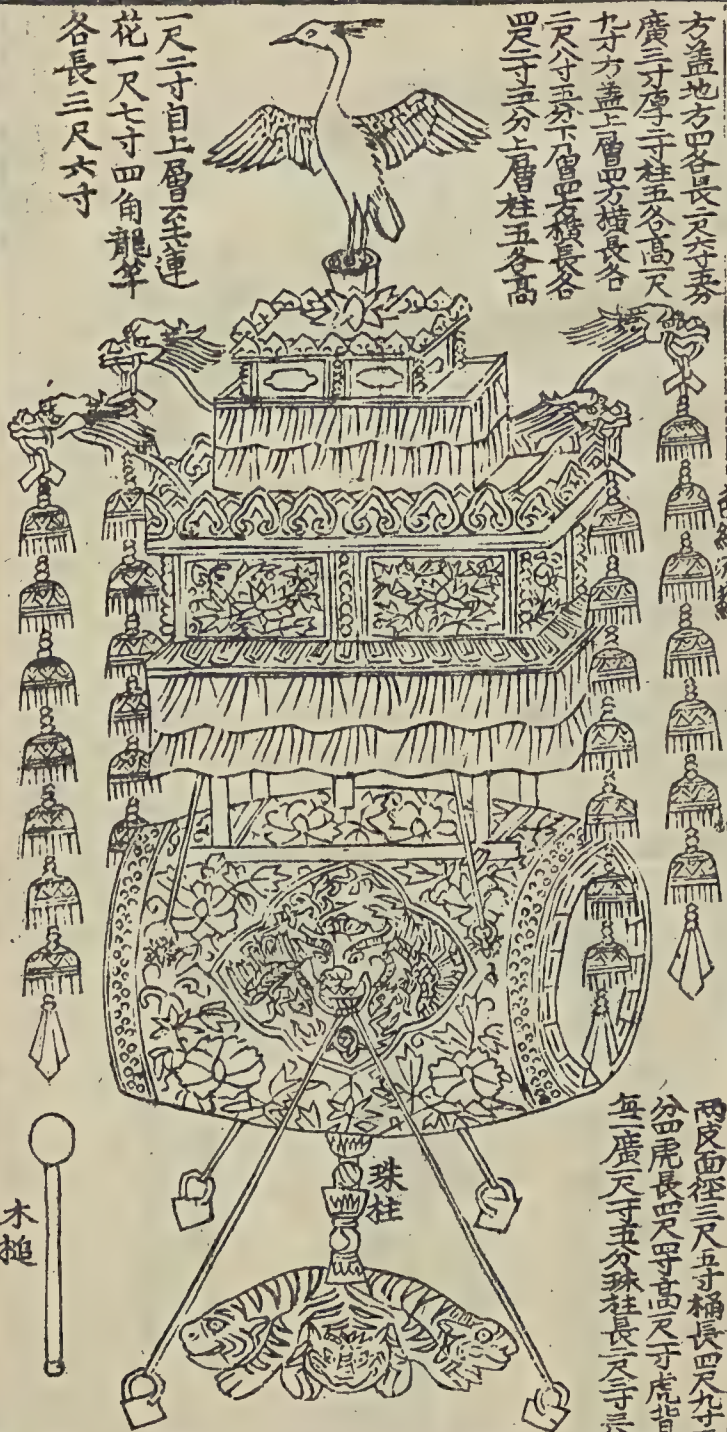 方盖地方四各長二尺六寸五分
廣三寸厚二寸柱五各高一尺
九寸方盖上層四方橫長各
二尺八寸五分下層四方橫長各
四尺二寸五分上層柱五各高
一尺二寸自上層至蓮
花一尺七寸四角龍竿
各長三尺六寸
兩皮面徑三尺五寸桶長四尺九寸
分四虎長四尺四寸高一尺一寸虎背
每一廣一尺一寸五分珠柱長二尺三寸
珠柱
木槌